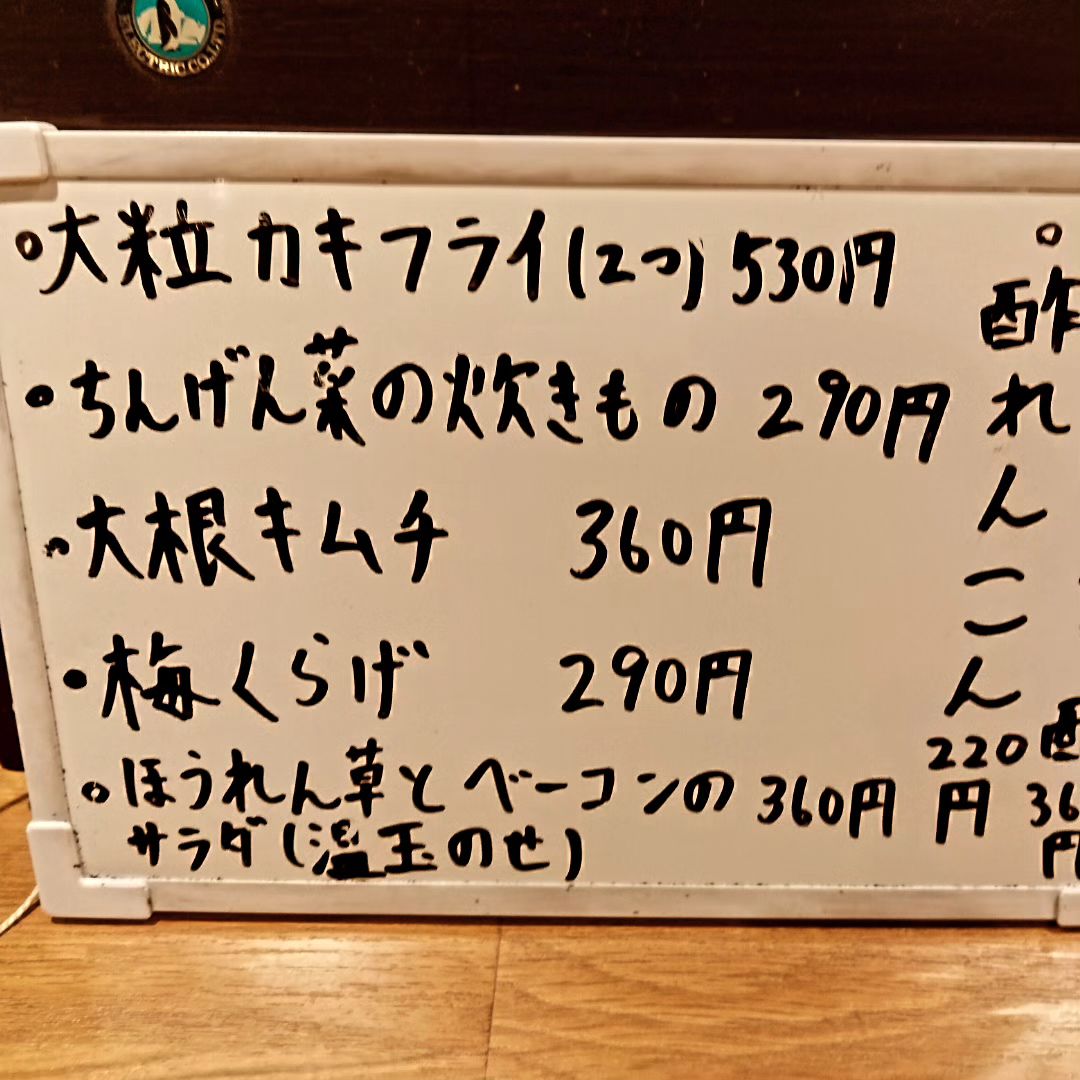 ELECTRIC.CO.LTD
大粒カキフライ(2つ) 530円
ちんげん菜の炊きもの 290円
大根キムチ 360円
梅くらげ 290円
ほうれん草とベーコンの 360円
サラダ(温玉のせ)
酢れんこん
220
円